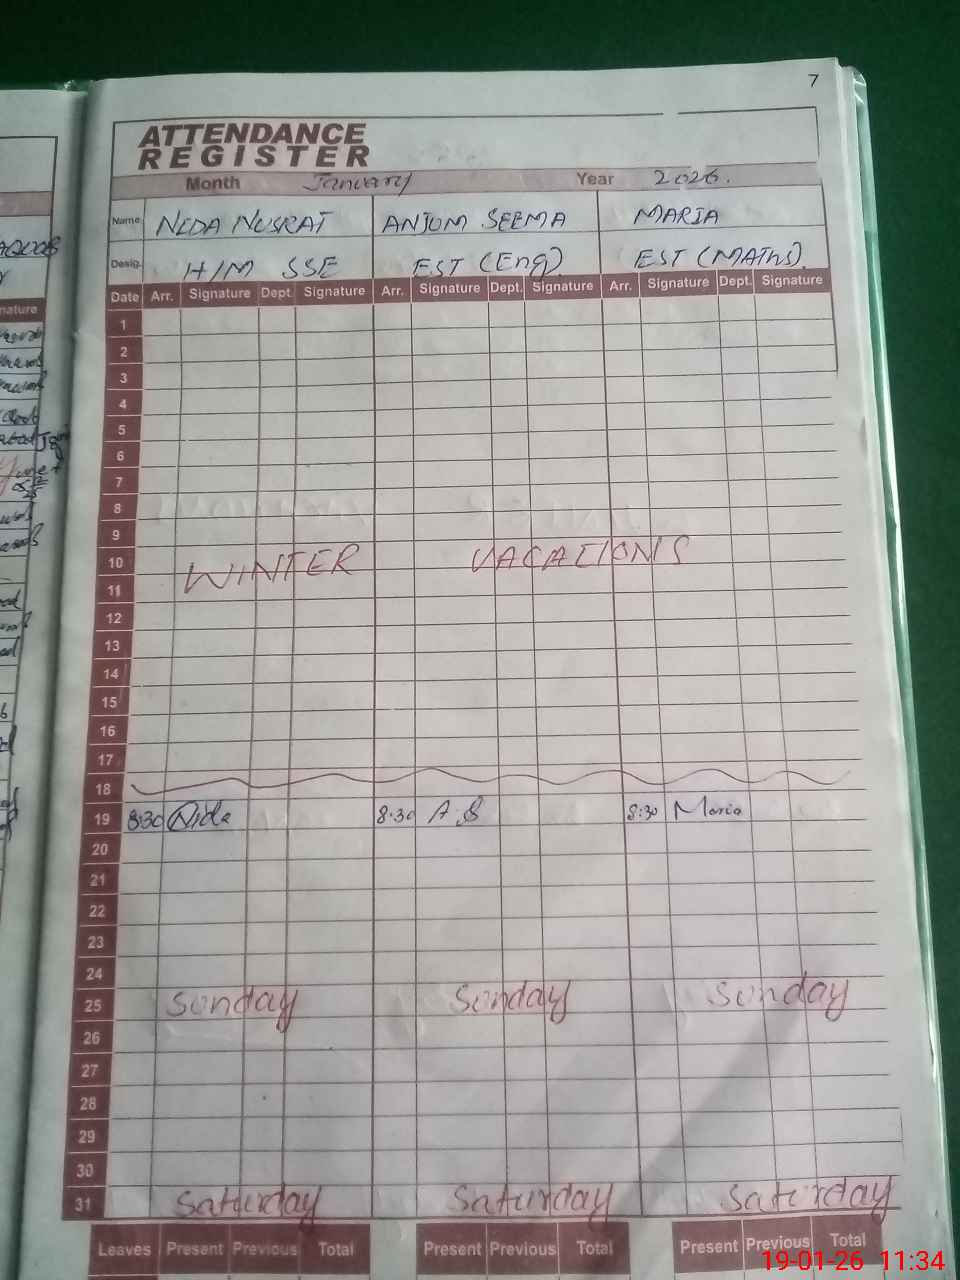 7
ATTENDANCE
REGISTER
Month January Year 2026.
Name NIDA NUSRAT ANJUM SEEMA MARIA
Desig. H/M SSE EST (Eng) EST (MAThs)
Date Arr. Signature Dept. Signature Arr. Signature Dept. Signature Arr. Signature Dept. Signature
1
2
3
4
5
6
7
8
9
10
WINTER VACATIONS
11
12
13
14
15
16
17
18
19 8:30 Nida 8:30 A.S 8:30 Maria
20
21
22
23
24
25 Sunday Sunday Sunday
26
27
28
29
30
31 Saturday Saturday Saturday
Leaves Present Previous Total Present Previous Total Present Previous Total
19-01-26 11:34